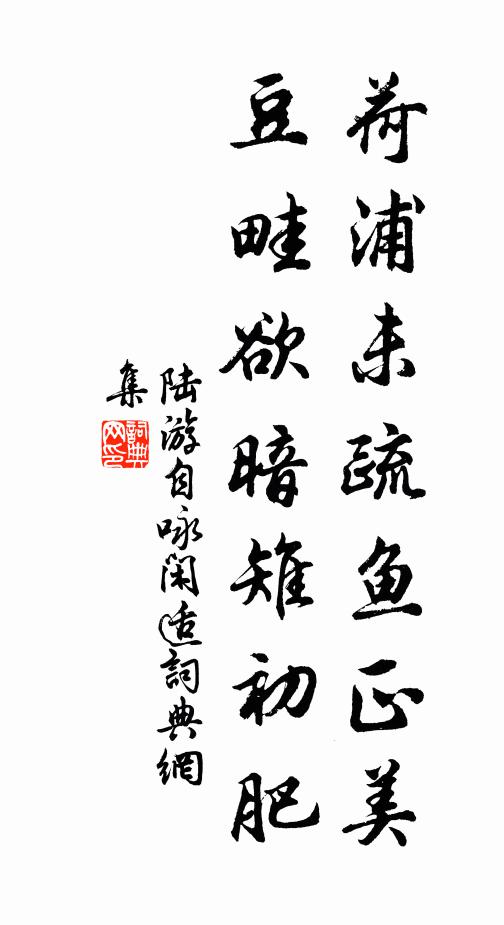 荷浦未疏鱼正美
豆畦欲暗雉初肥
陆游自咏闲适詞典網
集
詞典网印